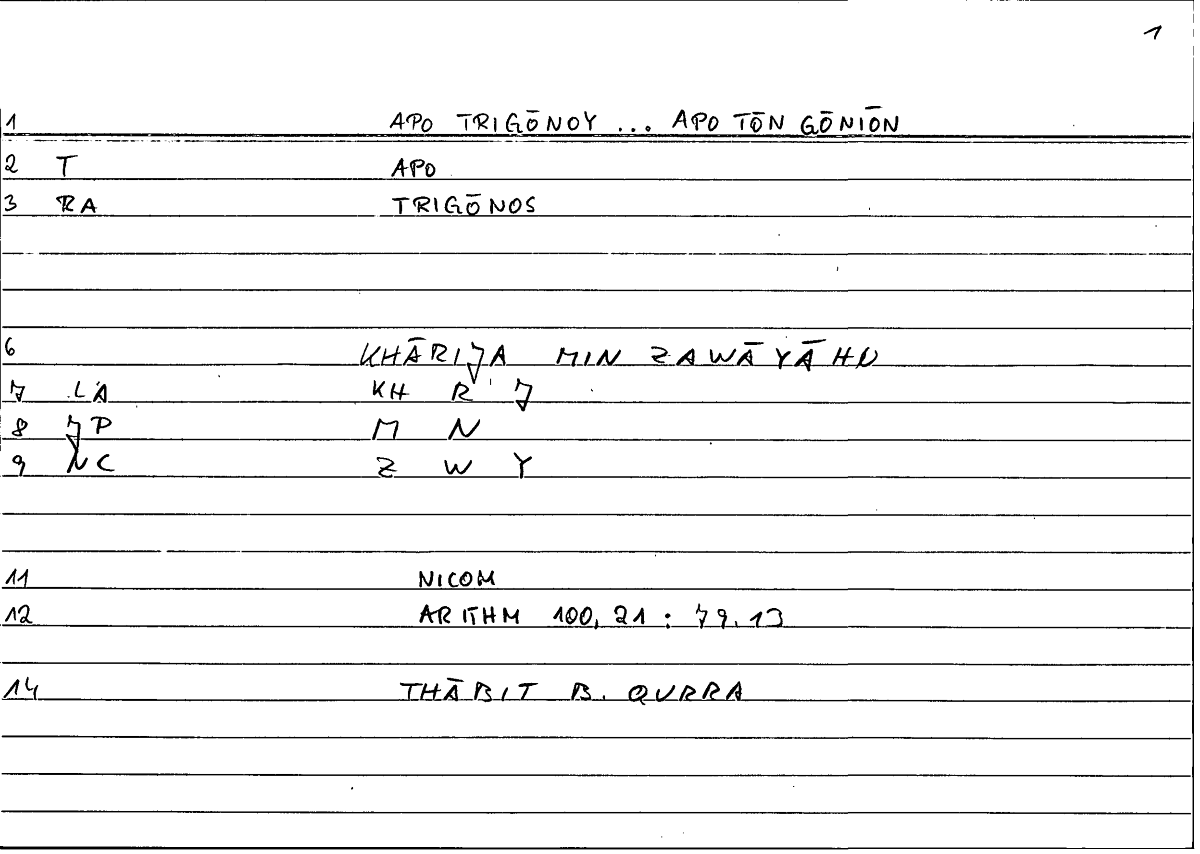 1
1 APO TRIGŌNOY ... APO TŌN GŌNIŌN
2 T APO
3 RA TRIGŌNOS
6 KHĀRIJA MIN ZAWĀYĀHU
7 LA KH R J
8 JP M N
9 NC Z W Y
11 NICOM
12 ARITHM 100,21 : 79.13
14 THĀBIT B. QURRA